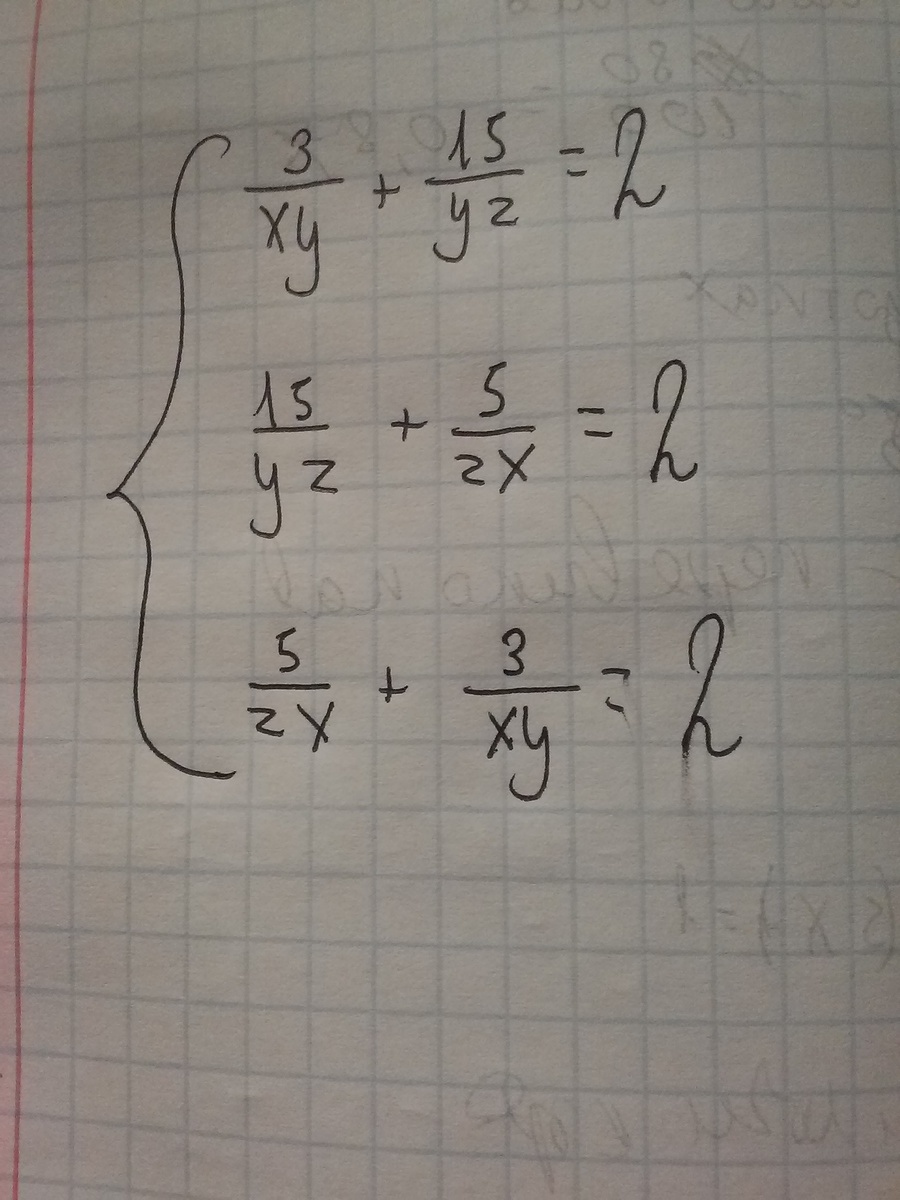 3/xy + 15/yz = 2
15/yz + 5/zx = 2
5/zx + 3/xy = 2